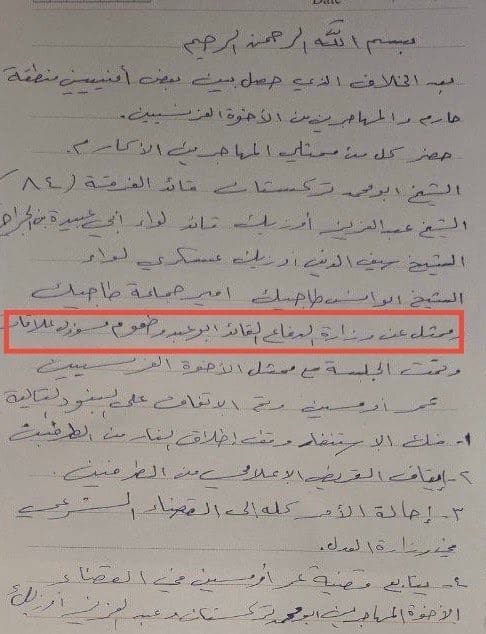 Date
بسم الله الرحمن الرحيم
بعد الخلاف الذي حصل بين بعض أمنيين منطقة
حارم والمهاجرين من الأخوة الفرنسيين.
حضر كل من ممثلي المهاجرين الأكارم.
الشيخ ابو محمد تركستان قائد الفرقة (٨٤
الشيخ عبدالعزيز أوزبك قائد لواء أبي عبيدة بن الجراح
الشيخ سيف الدين أوزبك عسكري لواء
الشيخ ابو أنس طاجيك امير جماعة طاجيك
وممثل عن وزارة الدفاع القائد ابو عبدو طعوم مسؤول علاقات
وتمت الجلسة مع ممثل الأخوة الفرنسيين
عمر أومسين وتم الاتفاق على البنود التالية
١- فك الاستنفار وقف إطلاق النار من الطرفين
٢- إيقاف التحريض الإعلامي من الطرفين.
٣- إحالة الأمر كله إلى القضاء الشرعي
في وزارة العدل.
٤- يتابع قضية عمر أومسين في القضاء
الأخوة المهاجرين ابو محمد تركستان وعبد العزيز أوزبك